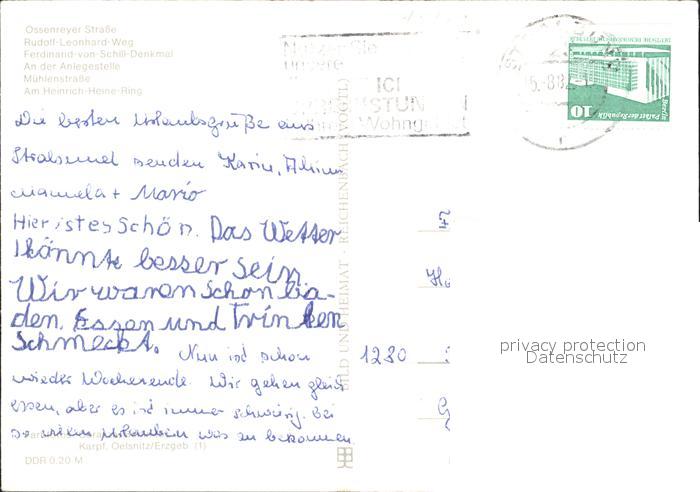 Ossenreyer Straße
Rudolf-Leonhard-Weg
Ferdinand-von-Schill-Denkmal
An der Anlegestelle
Mühlenstraße
Am Heinrich-Heine-Ring
Die besten Urlaubsgrüße aus
Stralsund senden Karin,
Manuela + Mario
Hier ist es Schön. Das Wetter
könnte besser sein
Wir waren schon ba-
den. Essen und Trinken
Schmeckt. Nun ist schon
wieder Wochenende. Wir gehen gleich
essen, aber es ist immer schwierig bei
so vielen Urlaubern was zu bekommen.
Karpf, Oelsnitz/Erzgeb (1)
DDR 0,20 M
BILD UND HEIMAT · REICHENBACH (VOGTL)
Nutzen Sie
unsere
Wohngebiet
DEUTSCHE DEMOKRATISCHE REPUBLIK
Berlin
Palast der Republik
10
1230
privacy protection
Datenschutz